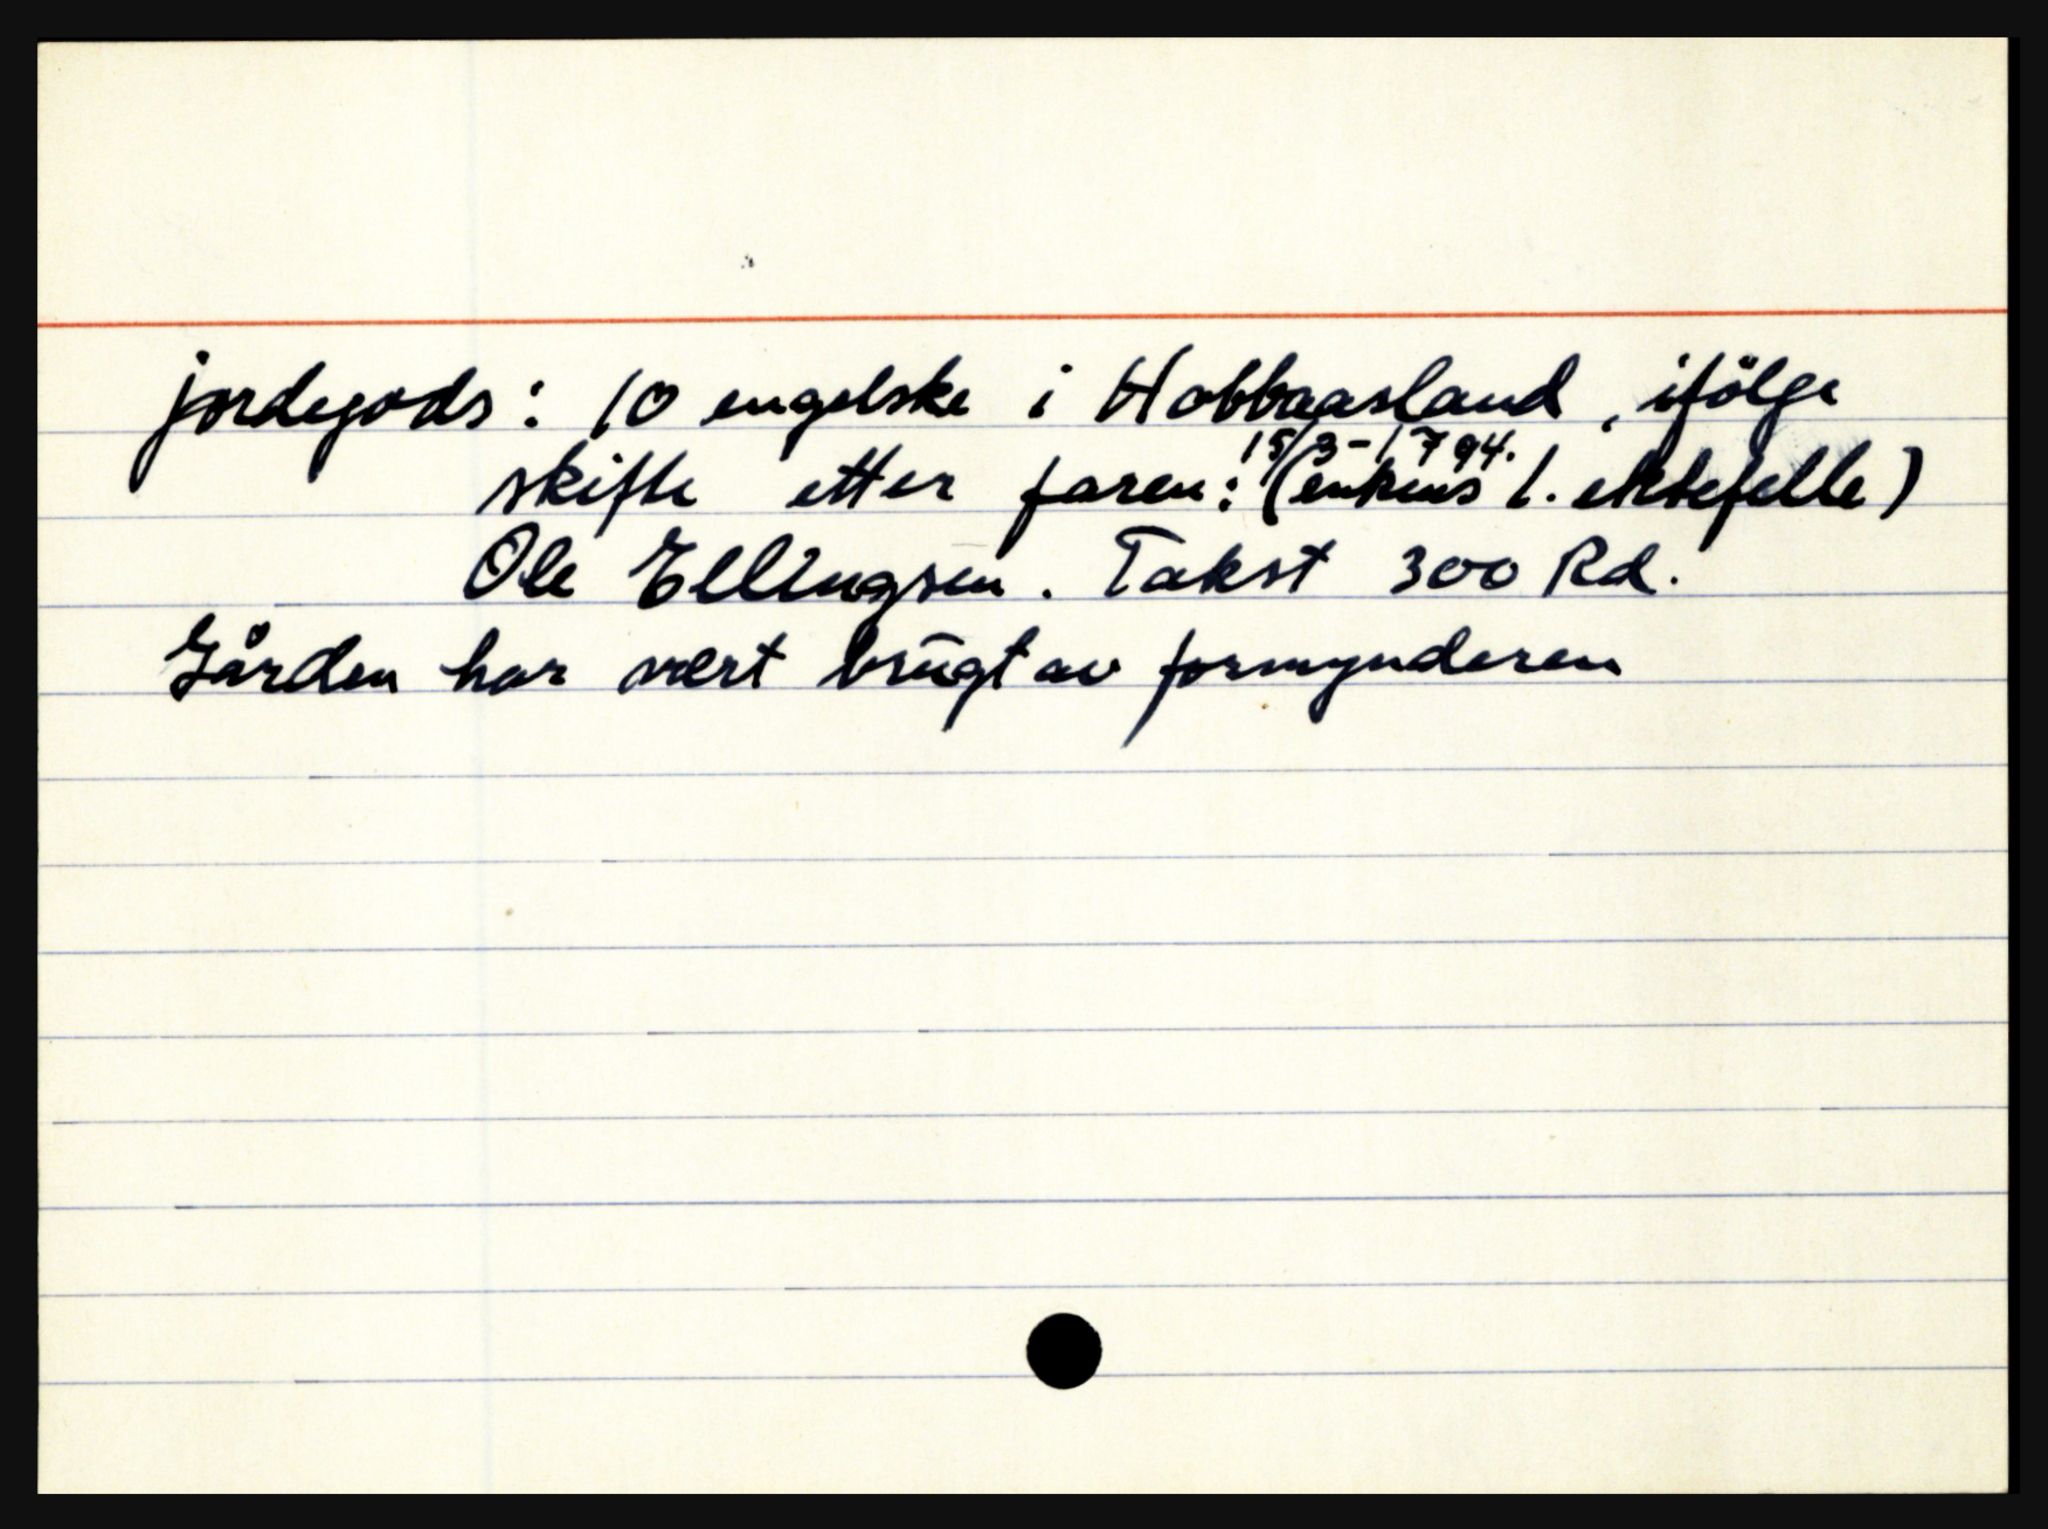 jordegods: 10 engelske i Hobbaasland, ifölge
15/3-1794.
skifte etter faren: (enkens 1. ektefelle)
Ole Ellingsen. Takst 300 Rd.
Gården har vært brūgt av formynderen